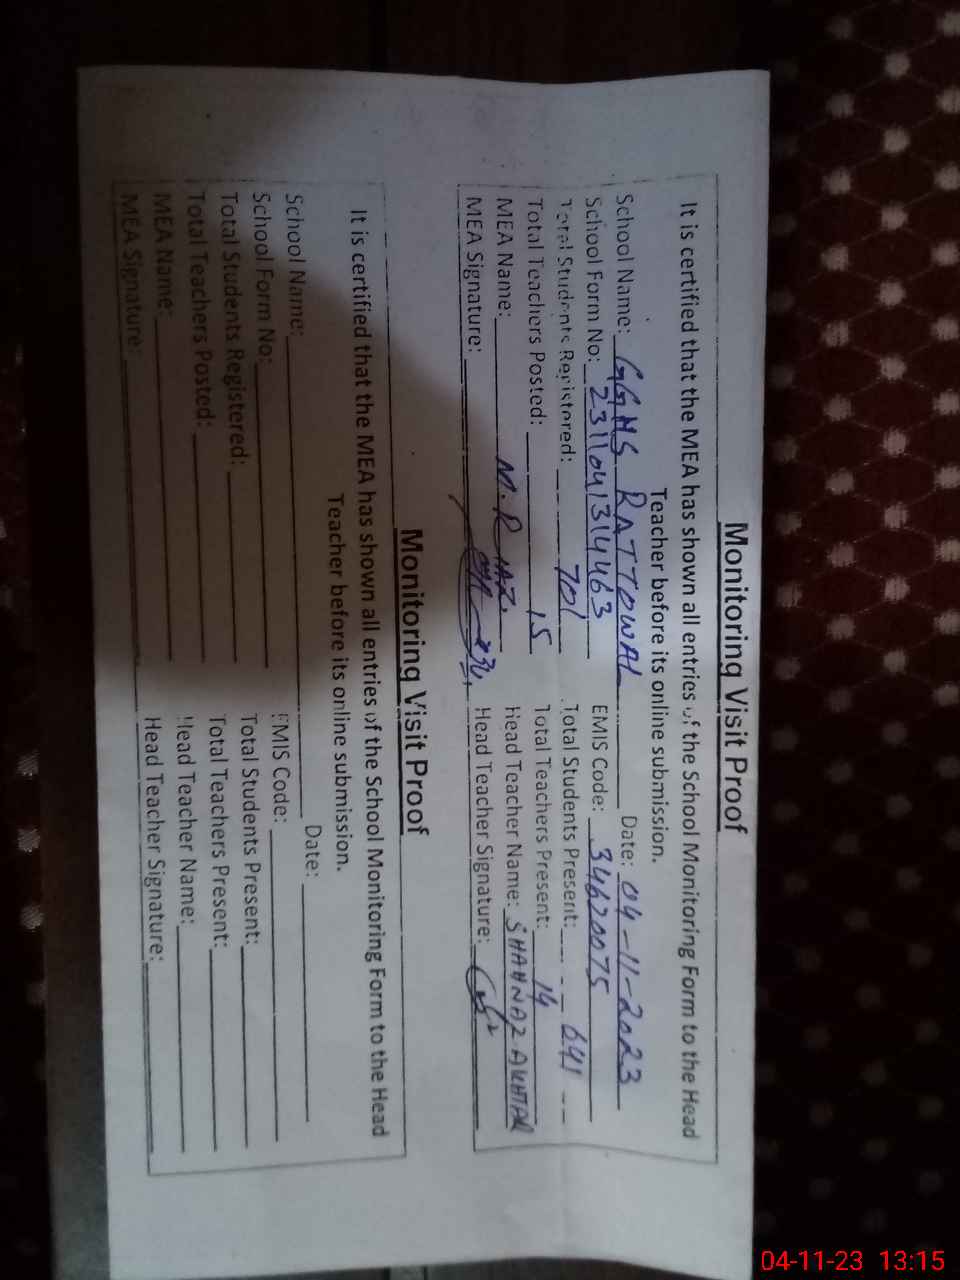 Monitoring Visit Proof
It is certified that the MEA has shown all entries of the School Monitoring Form to the Head
Teacher before its online submission.
School Name: GGHS RATTOWAL Date: 04-11-2023
School Form No: 2311041314463 EMIS Code: 34620075
Total Students Registered: 701 Total Students Present: 641
Total Teachers Posted: 15 Total Teachers Present: 14
MEA Name: M. RIAZ. Head Teacher Name: SHAHNAZ AKHTAR
MEA Signature: Head Teacher Signature:
Monitoring Visit Proof
It is certified that the MEA has shown all entries of the School Monitoring Form to the Head
Teacher before its online submission.
School Name: Date:
School Form No: EMIS Code:
Total Students Registered: Total Students Present:
Total Teachers Posted: Total Teachers Present:
MEA Name: Head Teacher Name:
MEA Signature: Head Teacher Signature:
04-11-23 13:15